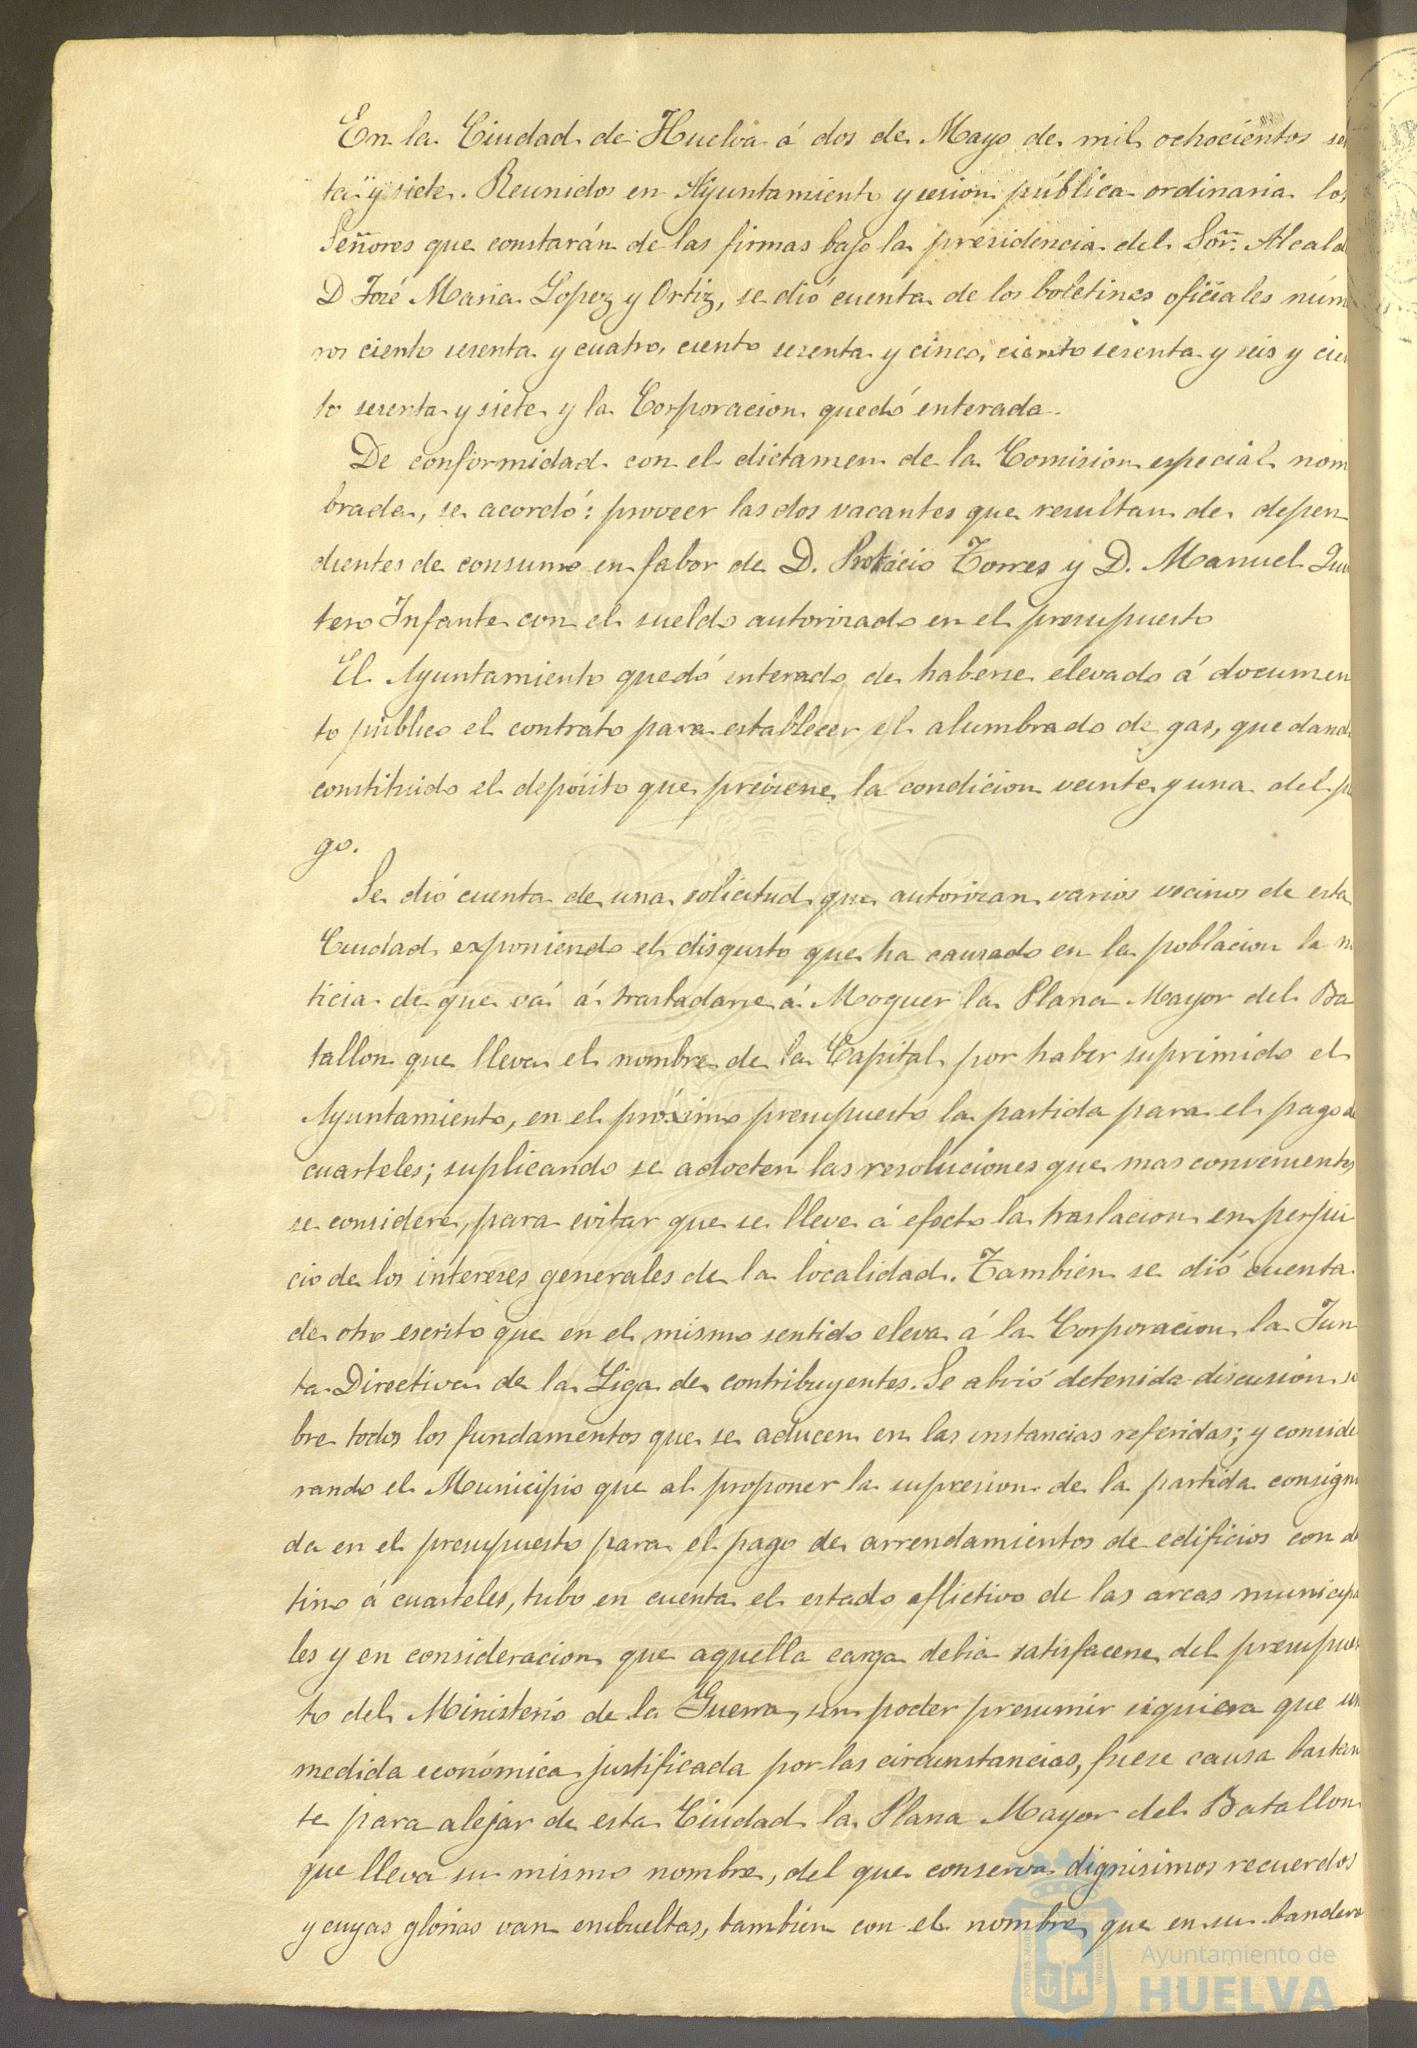 En la Ciudad de Huelva á dos de Mayo de mil ochocientos se
ta y siete. Reunidos en Ayuntamiento y sesion pública ordinaria los
Señores que constarán de las firmas bajo la presidencia del Sor. Alcald
D José Maria Lopez y Ortiz, se dió cuenta de los boletines oficiales núm
ros ciento sesenta y cuatro, ciento sesenta y cinco, ciento sesenta y seis y cie
to sesenta y siete y la Corporacion quedó enterada.
De conformidad con el dictamen de la Comision especial nom
brada, se acordó: proveer las dos vacantes que resultan de depen
dientes de consumo en fabor de D. Protacio Torres y D. Manuel Qui
tero Infante con el sueldo autorizado en el presupuesto
El Ayuntamiento quedó enterado de haberse elevado á documen
to público el contrato para establecer el alumbrado de gas, quedand
constituido el depósito que previene la condicion veinte y una del p
go.
Se dió cuenta de una solicitud que autorizan varios vecinos de esta
Ciudad exponiendo el disgusto que ha causado en la poblacion la n
ticia de que vá á trasladarse á Moguer la Plana Mayor del Ba
tallon que lleva el nombre de la Capital por haber suprimido el
Ayuntamiento, en el próximo presupuesto la partida para el pago de
cuarteles; suplicando se adocten las resoluciones que mas convenientes
se considere, para evitar que se lleve á efecto la traslacion en perjui
cio de los intereses generales de la localidad. Tambien se dió cuenta
de otro escrito que en el mismo sentido eleva á la Corporacion la Jun
ta Directiva de la Liga de contribuyentes. Se abrió detenida discusion so
bre todos los fundamentos que se aducen en las instancias referidas; y conside
rando el Municipio que al proponer la supresion de la partida consigna
da en el presupuesto para el pago de arrendamientos de edificios con de
tino á cuarteles, tubo en cuenta el estado aflictivo de las arcas municipa
les y en consideracion que aquella carga debia satisfacerse del presupues
to del Ministerio de la Guerra, sin poder presumir siquiera que un
medida económica justificada por las circunstancias, fuese causa bastan
te para alejar de esta Ciudad la Plana Mayor del Batallon
que lleva su mismo nombre, del que conserva dignisimos recuerdos
y cuyas glorias van embueltas, tambien con el nombre que en su bandera
Ayuntamiento de
HUELVA